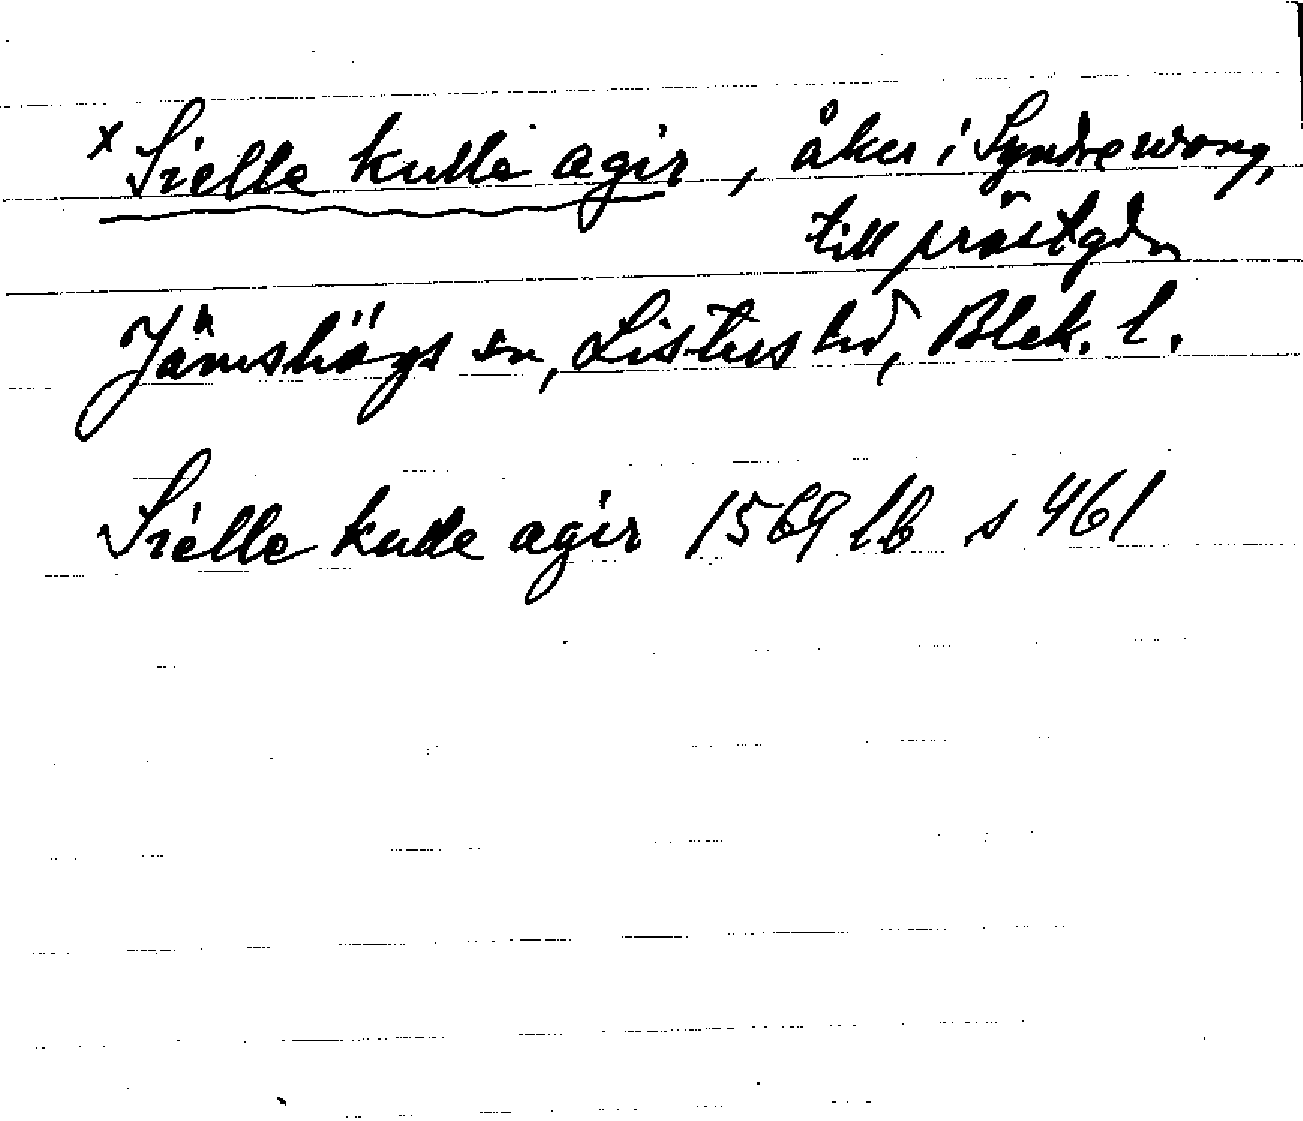 x Sielle kulle agir, åker i Syndrewong,
till prästgdn
Jämshögs sn, Listers hd, Blek. l.
Sielle kulle agir 1569 lb s 461